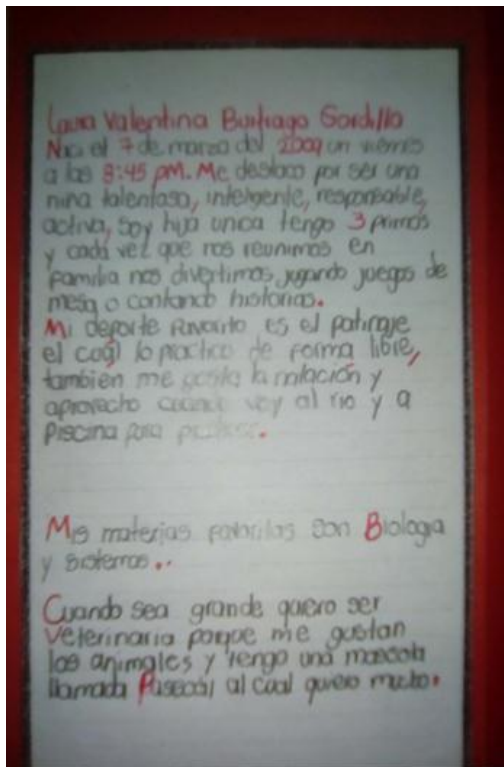 Laura Valentina Buitrago Gordillo
Nací el 7 de marzo del 2009 un viernes
a las 8:45 pm. Me destaco por ser una
niña talentosa, inteligente, responsable,
activa, soy hija unica tengo 3 primos
y cada vez que nos reunimos en
familia nos divertimos jugando juegos de
mesa o contando historias.
Mi deporte favorito es el patinaje
el cual lo practico de forma libre,
también me gusta la natación y
aprovecho cuando voy al rio y a
Piscina para
Mis materias favoritas son Biologia
y sistemas..
Cuando sea grande quiero ser
Veterinaria porque me gustan
los animales y tengo una mascota
llamada al cual quiero mucho.